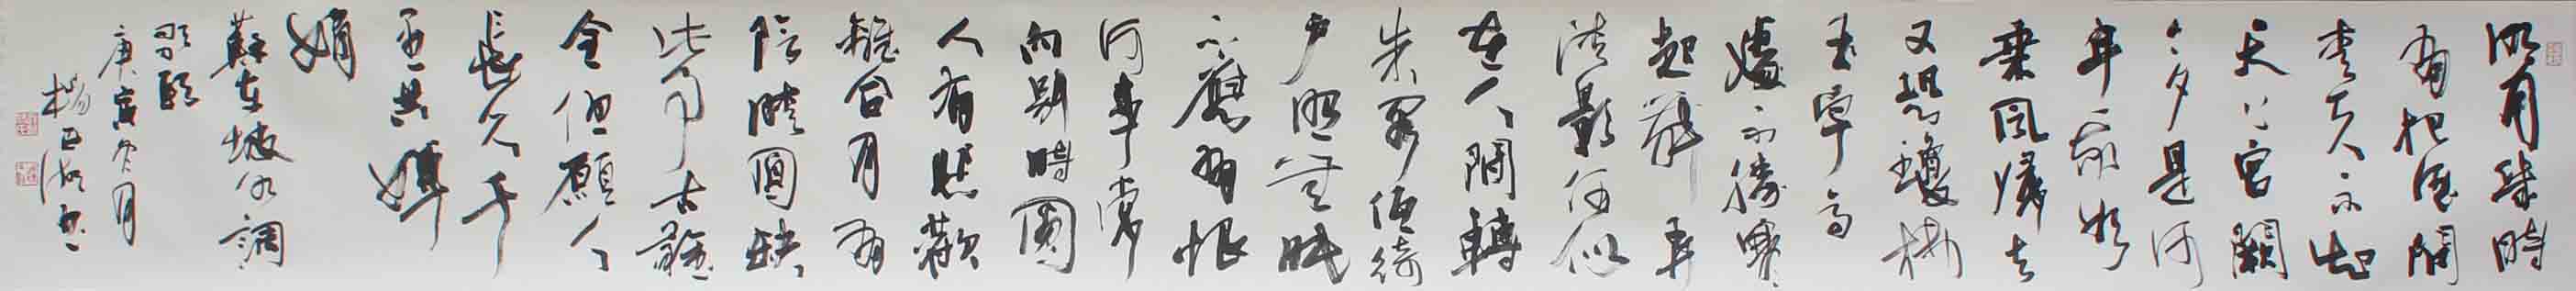 明月幾時
有把酒問
青天不知
天上宮闕
今夕是何
年我欲
乘風歸去
又恐瓊樓
玉宇高
處不勝寒
起舞弄
清影何似
在人間轉
朱閣低綺
戶照無眠
不應有恨
何事常
向別時圓
人有悲歡
離合月有
陰晴圓缺
此事古難
全但願人
長久千
里共嬋
娟
蘇東坡水調
歌頭
庚寅冬月
楊